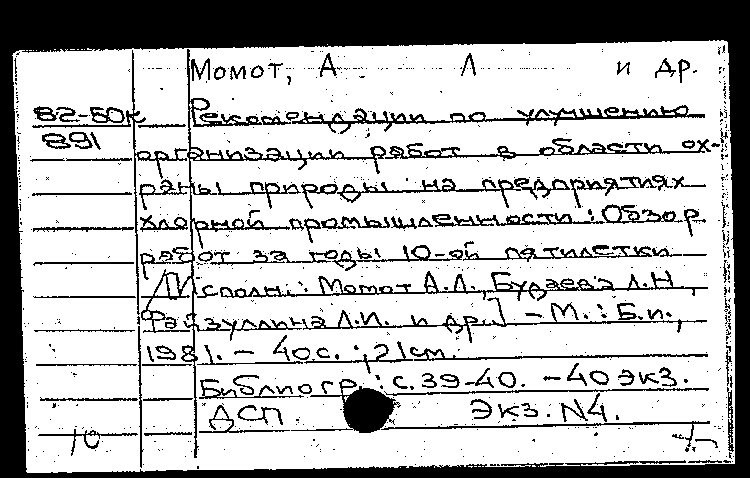 Момот, А Л и др.
82-50к Рекомендации по улучшению
891
организации работ в области ох-
раны природы на предприятиях
хлорной промышленности : Обзор
работ за годы 10-ой пятилетки
/[Исполн.: Момот А.Л., Будаева Л.Н.,
Файзуллина Л.И. и др.] - М. : Б.и.,
1981. - 40 с. ; 21 см.
Библиогр.: с. 39-40. - 40 экз.
ДСП Экз. N4.
10